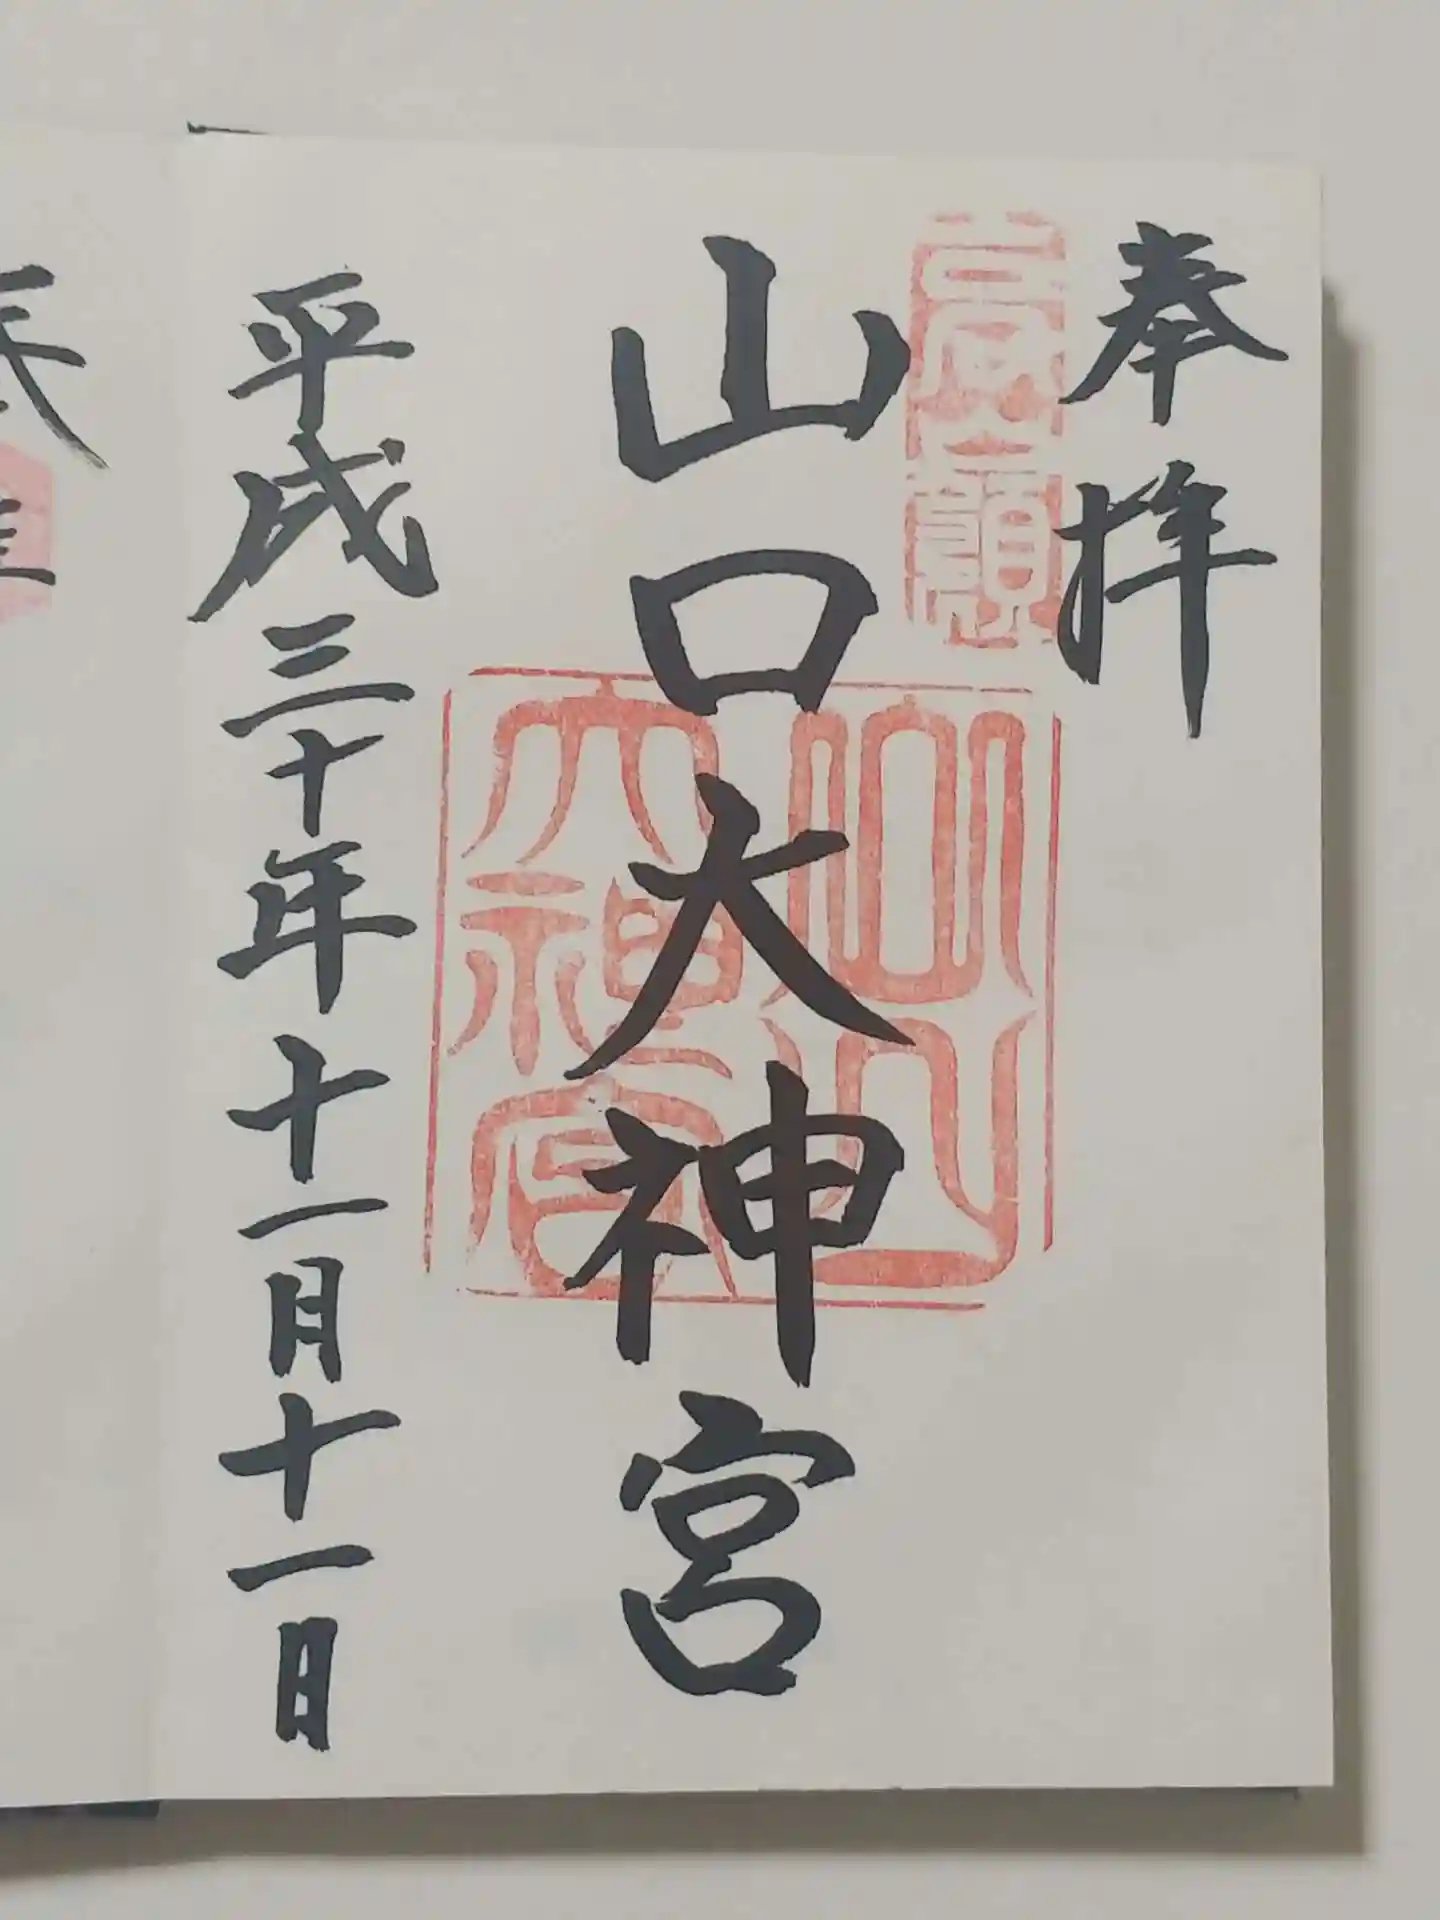 奉拝
山口大神宮
平成三十年十一月十一日